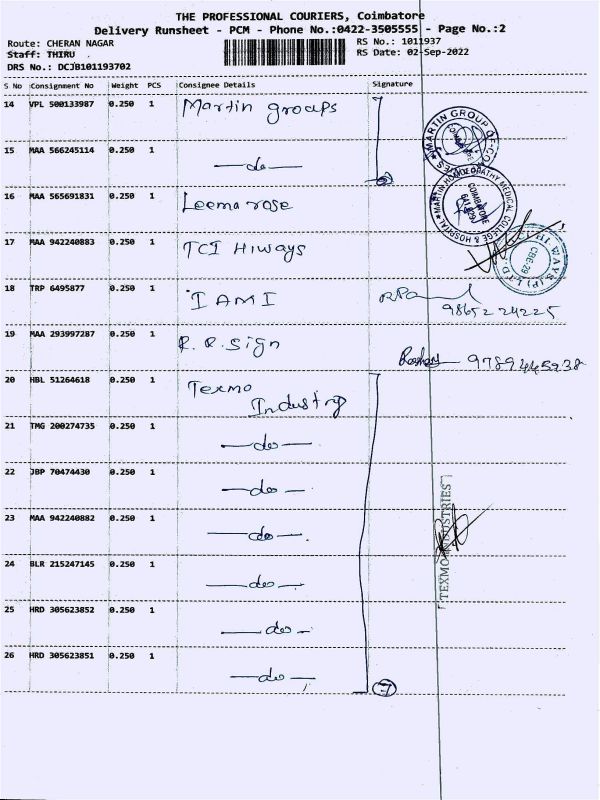 THE PROFESSIONAL COURIERS, Coimbatore
Delivery Runsheet - PCM - Phone No.:0422-3505555 - Page No.:2
Route: CHERAN NAGAR RS No.: 1011937
Staff: THIRU RS Date: 02-Sep-2022
DRS No.: DCJB101193702
S No Consignment No Weight PCS Consignee Details Signature
14 VPL 500133987 0.250 1 Martin groups
MARTIN GROUP OF CO
COIMBATORE
15 MAA 566245114 0.250 1 —do—
2
16 MAA 565691831 0.250 1 Leema rose
MARTIN HOMOEOPATHY MEDICAL COLLEGE & HOSPITAL
COIMBATORE
17 MAA 942240883 0.250 1 TCI Hiways
HI-WAYS (P) LTD.
CBE-29
18 TRP 6495877 0.250 1 IAMI
98652 24225
19 MAA 293997287 0.250 1 R.R.Sign
9789445938
20 HBL 51264618 0.250 1 Texmo
Industry
21 TMG 200274735 0.250 1 —do—
22 JBP 70474430 0.250 1 —do—
23 MAA 942240882 0.250 1 —do—.
TEXMO INDUSTRIES
24 BLR 215247145 0.250 1 —do—.
25 HRD 305623852 0.250 1 —do—.
26 HRD 305623851 0.250 1 —do—
7